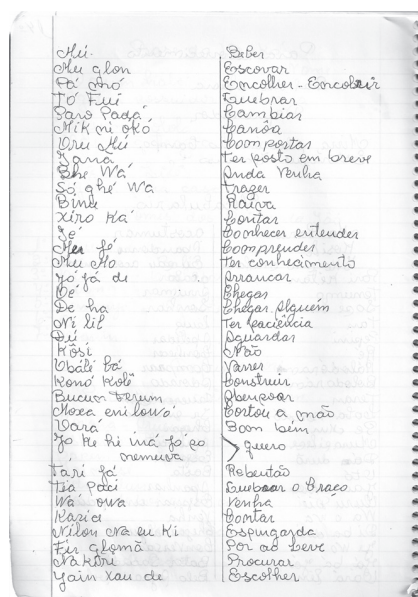 Mú- Beber
Mu glon Escovar
Pá mó Encolher - Encobrir
Tó Fui Quebrar
Paro Padá Cambiar
Mik ni okó Canôa
Vru Mú Comportas
Janná Ter posto em breve
Bhe Wá Anda Venha
Só ghé Wa Trager
Binu Raiva
Xiro Ka Contar
Jé Conhecer entender
Mu fó Comprender
Mu Mo Ter conhecimento
Jó já di Arrancar
Dé Chegar
De ha Chegar Alguém
Ni lil Ter paciência
Du Aguardar
Kôsi Não
Ubálé bá Varrer
Konó Kolê Construir
Bucum terum Abençoar
Moxa eni lowó Cortou a mão
Dará Bom bém
Jo Ke hi iná fó go
nemuwa > quero
Tari já Rebentão
Tia Paci Quebrar o Braço
Wá owa Venha
Karid Contar
Nilon Na eu Ki Espingarda
Fir glomã Por ao Leve
Na Kôri Procurar
Yain Xau de Escolher